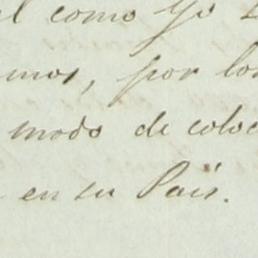 el como yo
mos, por los
modo de coloc
en su País.